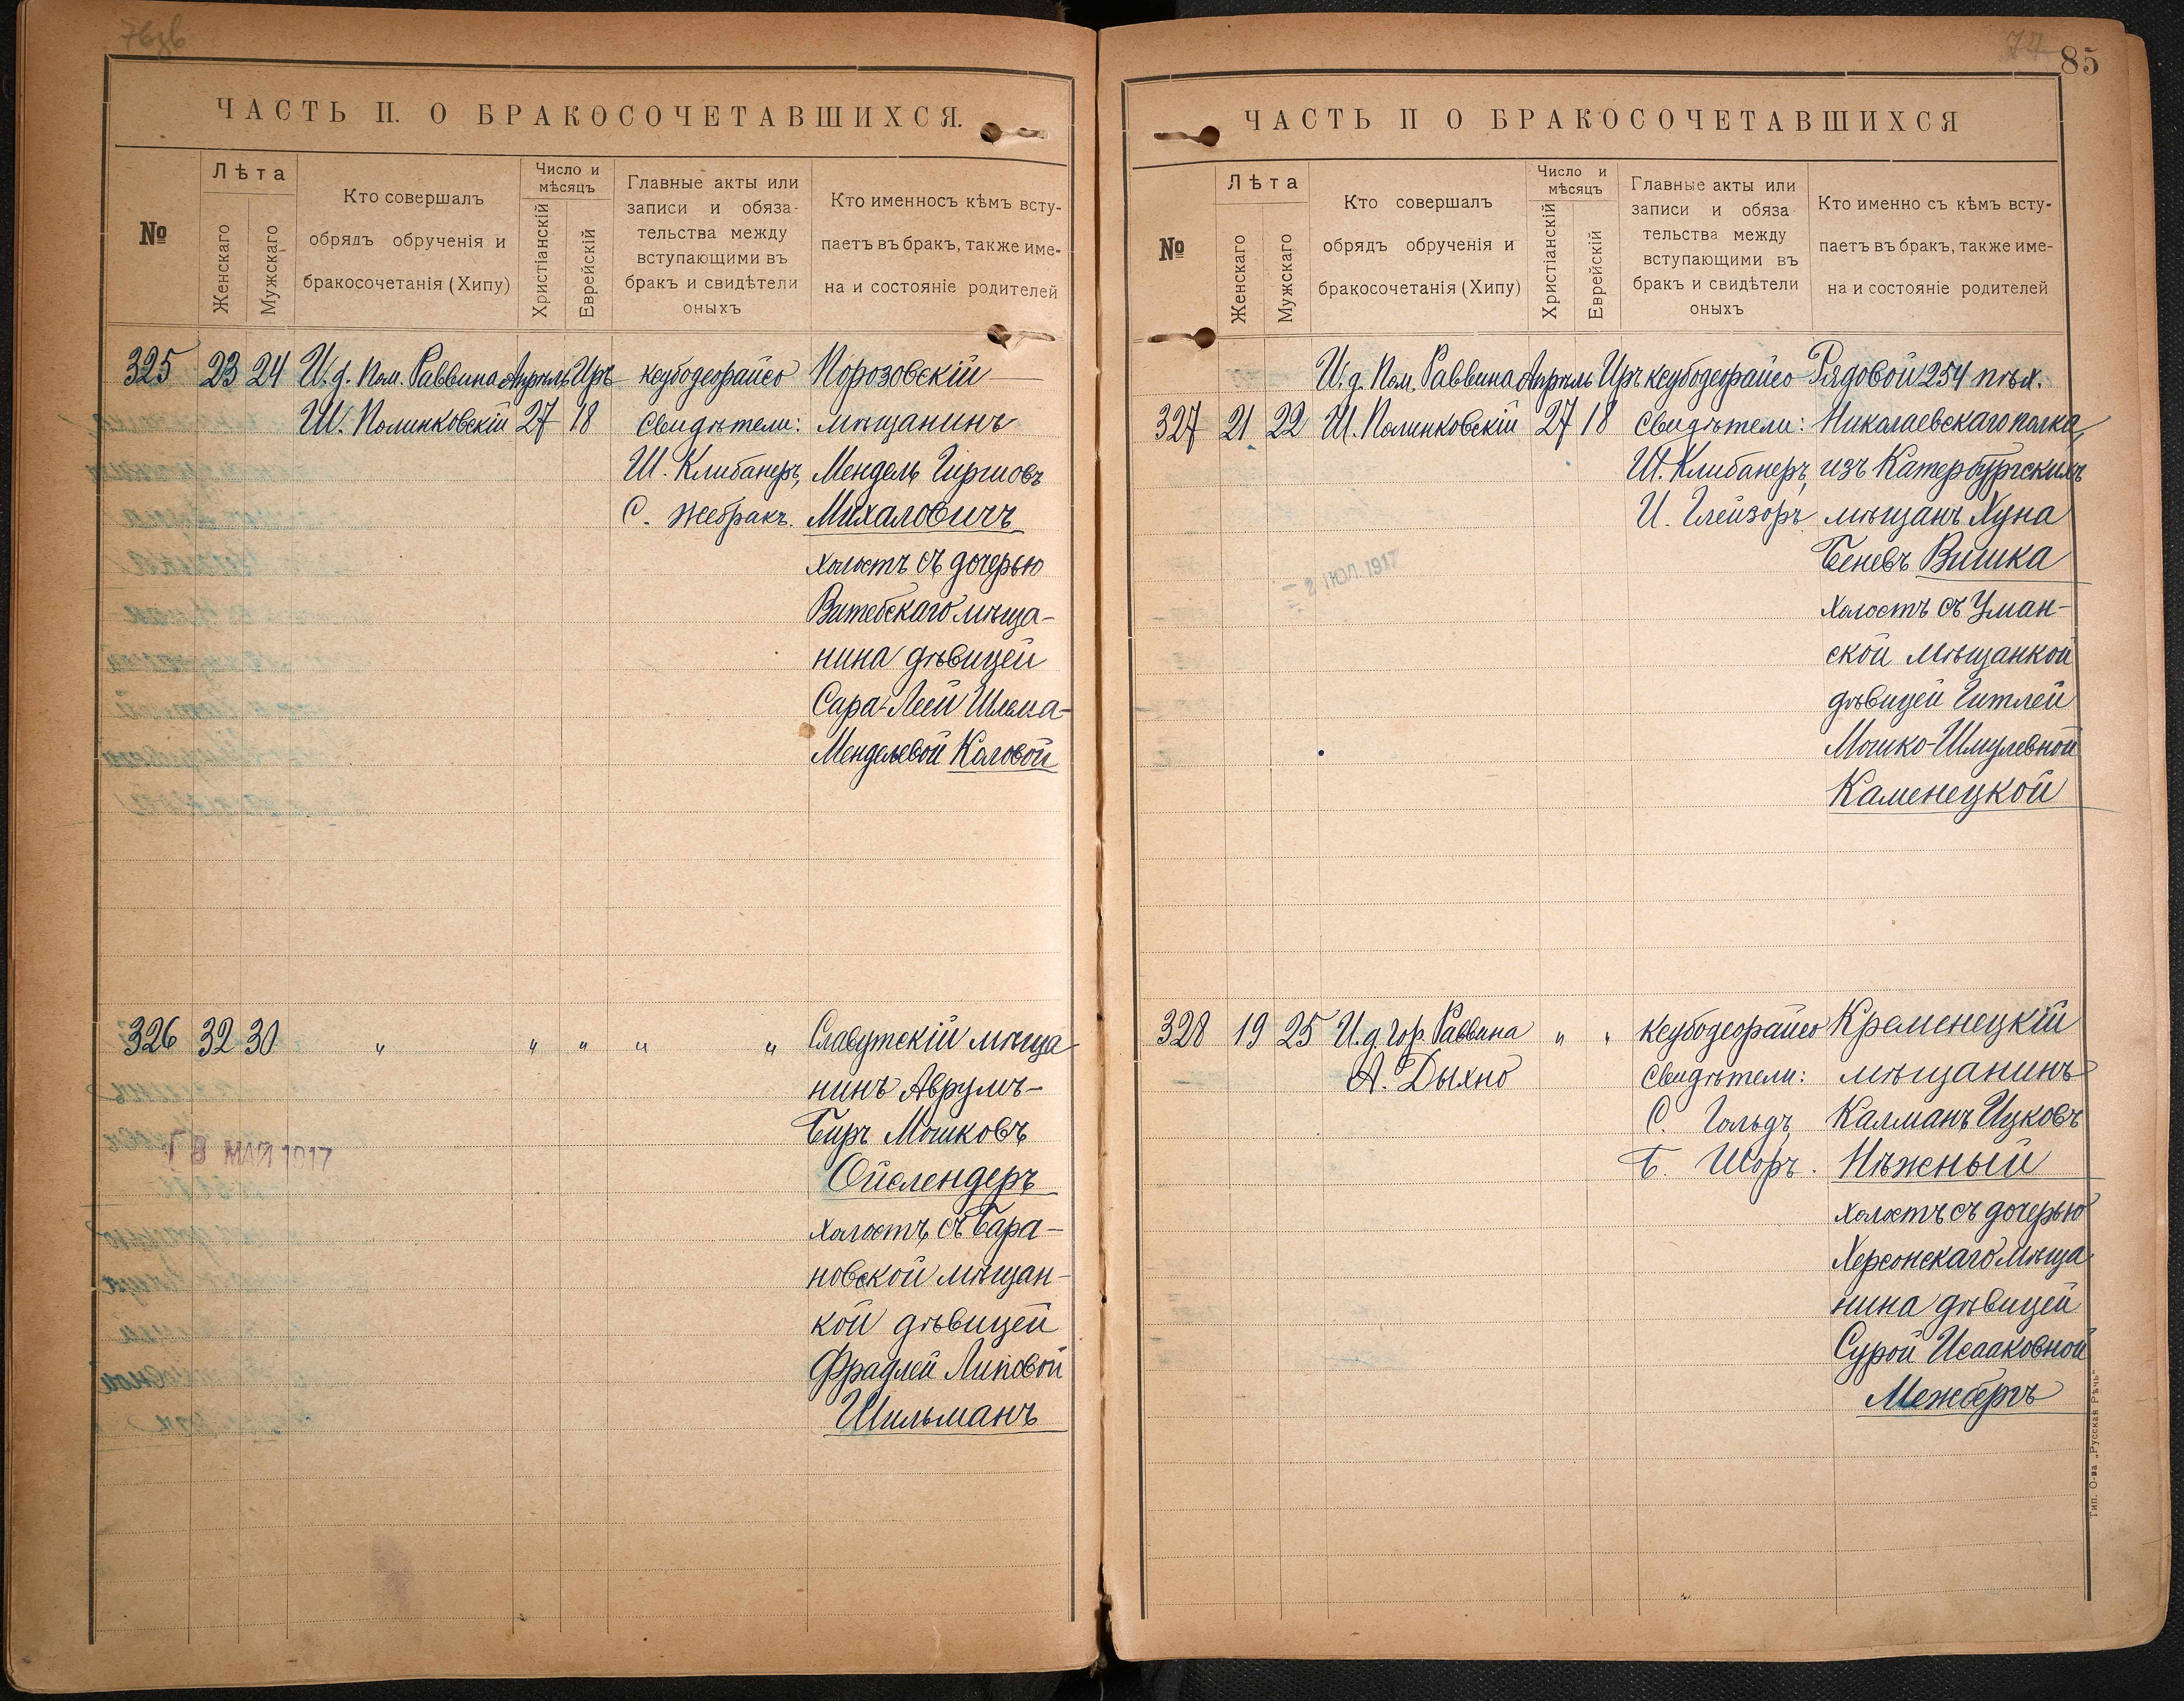 ЧАСТЬ II. О БРАКОСОЧЕТАВШИХСЯ.
№
Лѣта
Женскаго
Мужскаго
Кто совершалъ
обрядъ обрученія и
бракосочетанія (Хипу)
Число и
мѣсяцъ
Христіанскій
Еврейскій
Главные акты или
записи и обяза-
тельства между
вступающими въ
бракъ и свидѣтели
оныхъ
Кто именносъ кѣмъ всту-
паетъ въ бракъ, также име-
на и состояніе родителей
325 23 24 И. д. Пом. Раввина Апрѣль Iиръ ксубодеорайсо Порозовскій
Ш. Полинковскій 27 18 Свидѣтели: мѣщанинъ
Ш. Клибанеръ, Мендель Гиршовъ
С. Жебракъ. Михаловичъ
холостъ съ дочерью
Витебскаго мѣща-
нина дѣвицей
Сара-Леей Шлема-
Менделевой Каговой
326 32 30 " " " " " Славутскій мѣща
нинъ Аврумъ-
Беръ Мошковъ
Ойслендеръ
холостъ, съ Бара-
новской мѣщан-
кой дѣвицей
Фрадлей Липовой
Шильманъ
8 МАЙ 1917
85
ЧАСТЬ II О БРАКОСОЧЕТАВШИХСЯ
№
Лѣта
Женскаго
Мужскаго
Кто совершалъ
обрядъ обрученія и
бракосочетанія (Хипу)
Число и
мѣсяцъ
Христіанскій
Еврейскій
Главные акты или
записи и обяза
тельства между
вступающими въ
бракъ и свидѣтели
оныхъ
Кто именно съ кѣмъ всту-
паетъ въ бракъ, также име-
на и состояніе родителей
И. д. Пом. Раввина Апрѣль Iиръ ксубодеорайсо Рядовой 254 пѣх.
327 21 22 Ш. Полинковскій 27 18 Свидѣтели: Николаевскаго полка,
Ш. Клибанеръ, изъ Катербургскихъ
И. Глейзоръ мѣщанъ Хуна
Беневъ Вишка
холостъ съ Уман-
ской мѣщанкой
дѣвицей Гитлей
Мошко-Шмулевной
Каменецкой
- 2 ІЮЛ. 1917
328 19 25 И. д. гор. Раввина " " ксубодеорайсо Кременецкій
А. Дыхно Свидѣтели: мѣщанинъ
С. Гольдъ, Калманъ Ицковъ
Б. Шоръ. Нѣжный
холостъ съ дочерью
Херсонскаго мѣща
нина дѣвицей
Сурой Исааковной
Межбергъ
Тип. О-ва „Русская Рѣчь"